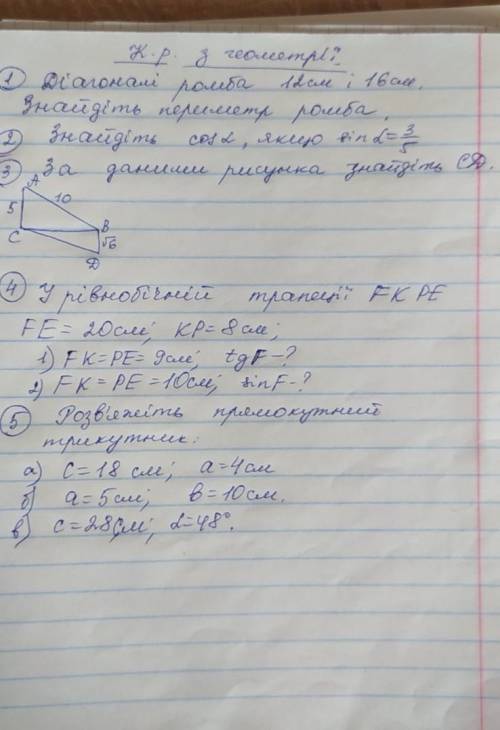 К.р. з геометрії
1 Діагоналі ромба 12см і 16см.
Знайдіть периметр ромба.
2 Знайдіть cosα, якщо sinα=3/5
3 За даними рисунка знайдіть CD.
A
10
5
C
B
√6
D
4 У рівнобічній трапеції FKPE
FE=20см; KP=8см;
1) FK=PE=9см; tgF-?
2) FK=PE=10см; sinF-?
5 Розв'яжіть прямокутний
трикутник:
а) c=18 см; a=4см
б) a=5см; в=10см.
в) c=28см; α=48°.